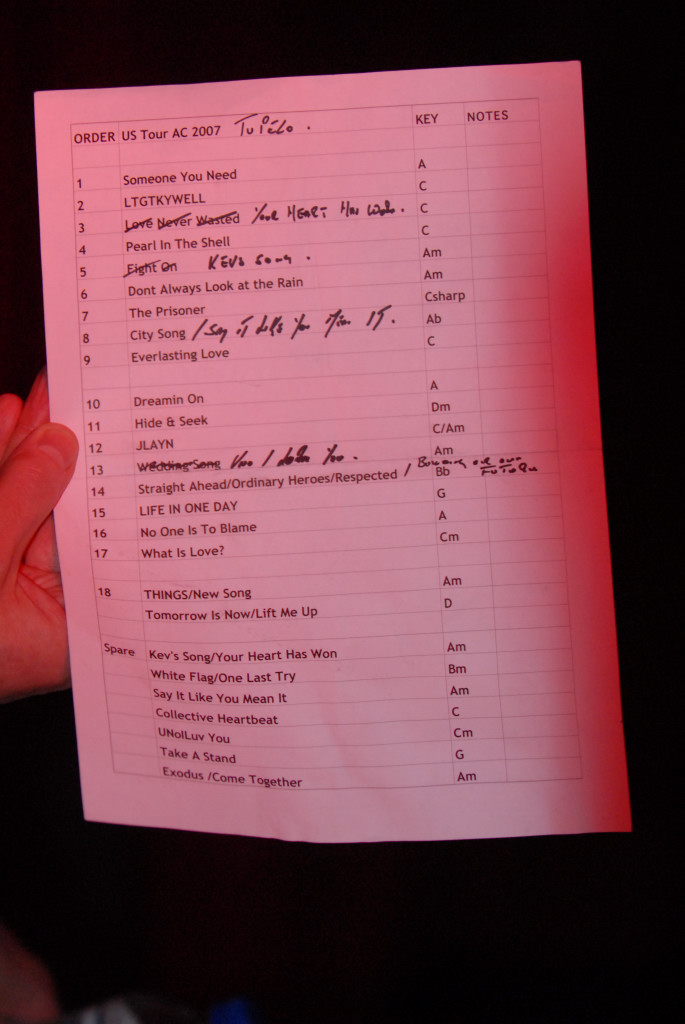 ORDER US Tour AC 2007 Tupelo. KEY NOTES
1 Someone You Need A
2 LTGTKYWELL C
3 Love Never Wasted Your HEART Has Won. C
4 Pearl In The Shell C
5 Fight On KEVS SONG. Am
6 Dont Always Look at the Rain Am
7 The Prisoner Csharp
8 City Song / Say IT like You Mean IT. Ab
9 Everlasting Love C
10 Dreamin On A
11 Hide & Seek Dm
12 JLAYN C/Am
13 Wedding Song You. Am
14 Straight Ahead/Ordinary Heroes/Respected / Building our own FUTURE Bb
15 LIFE IN ONE DAY G
16 No One Is To Blame A
17 What Is Love? Cm
18 THINGS/New Song Am
Tomorrow Is Now/Lift Me Up D
Spare Kev's Song/Your Heart Has Won Am
White Flag/One Last Try Bm
Say It Like You Mean It Am
Collective Heartbeat C
UNoILuv You Cm
Take A Stand G
Exodus /Come Together Am